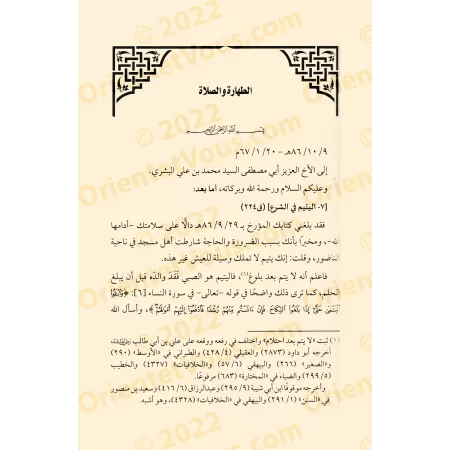 الطهارة والصلاة
بسم الله الرحمن الرحيم
٩/ ١٠/ ٨٦هـ - ٢٠/ ١/ ٦٧م
إلى الأخ العزيز أبي مصطفى السيد محمد بن علي البشري.
وعليكم السلام ورحمة الله وبركاته، أما بعد:
[٧- اليتيم في الشرع] (ق٢٢٤)
فقد بلغني كتابك المؤرخ بـ ٢٩/ ٩/ ٨٦هـ دالًّا على سلامتك -أدامها
الله-، ومخبرًا بأنك بسبب الضرورة والحاجة شارطت أهل مسجد في ناحية
الناضور، وقلت: إنك يتيم لا تملك وسيلة للعيش غير هذه.
فاعلم أنه لا يتم بعد بلوغ(١)، فاليتيم هو الصبي فَقَدَ والدَه قبل أن يبلغ
الحلم، كما ترى ذلك واضحًا في قوله -تعالى- في سورة النساء [٦]: ﴿وَابْتَلُوا
الْيَتَامَى حَتَّى إِذَا بَلَغُوا النِّكَاحَ فَإِنْ آنَسْتُمْ مِنْهُمْ رُشْدًا فَادْفَعُوا إِلَيْهِمْ أَمْوَالَهُمْ﴾، وأسأل الله
(١) ثبت «لا يتم بعد احتلام» واختلف في رفعه ووقفه على علي بن أبي طالب
أخرجه أبو داود (٢٨٧٣) والعقيلي (٤/ ٤٢٨) والطبراني في «الأوسط» (٢٩٠)
و«الصغير» (٢٦٦) والبيهقي (٦/ ٥٧) و«الخلافيات» (٤٣٢٧) والخطيب
(٥/ ٢٩٩) والضياء في «المختارة» (٦٨٣) مرفوعًا.
وأخرجه موقوفًا ابن أبي شيبة (٩/ ٢٩٥) وعبدالرزاق (٦/ ٤١٦) وسعيد بن منصور
في «السنن» (١/ ٢٩١) والبيهقي في «الخلافيات» (٤٣٢٨)، وهو أشبه.
© 2022
OrientVous.com
© 2022